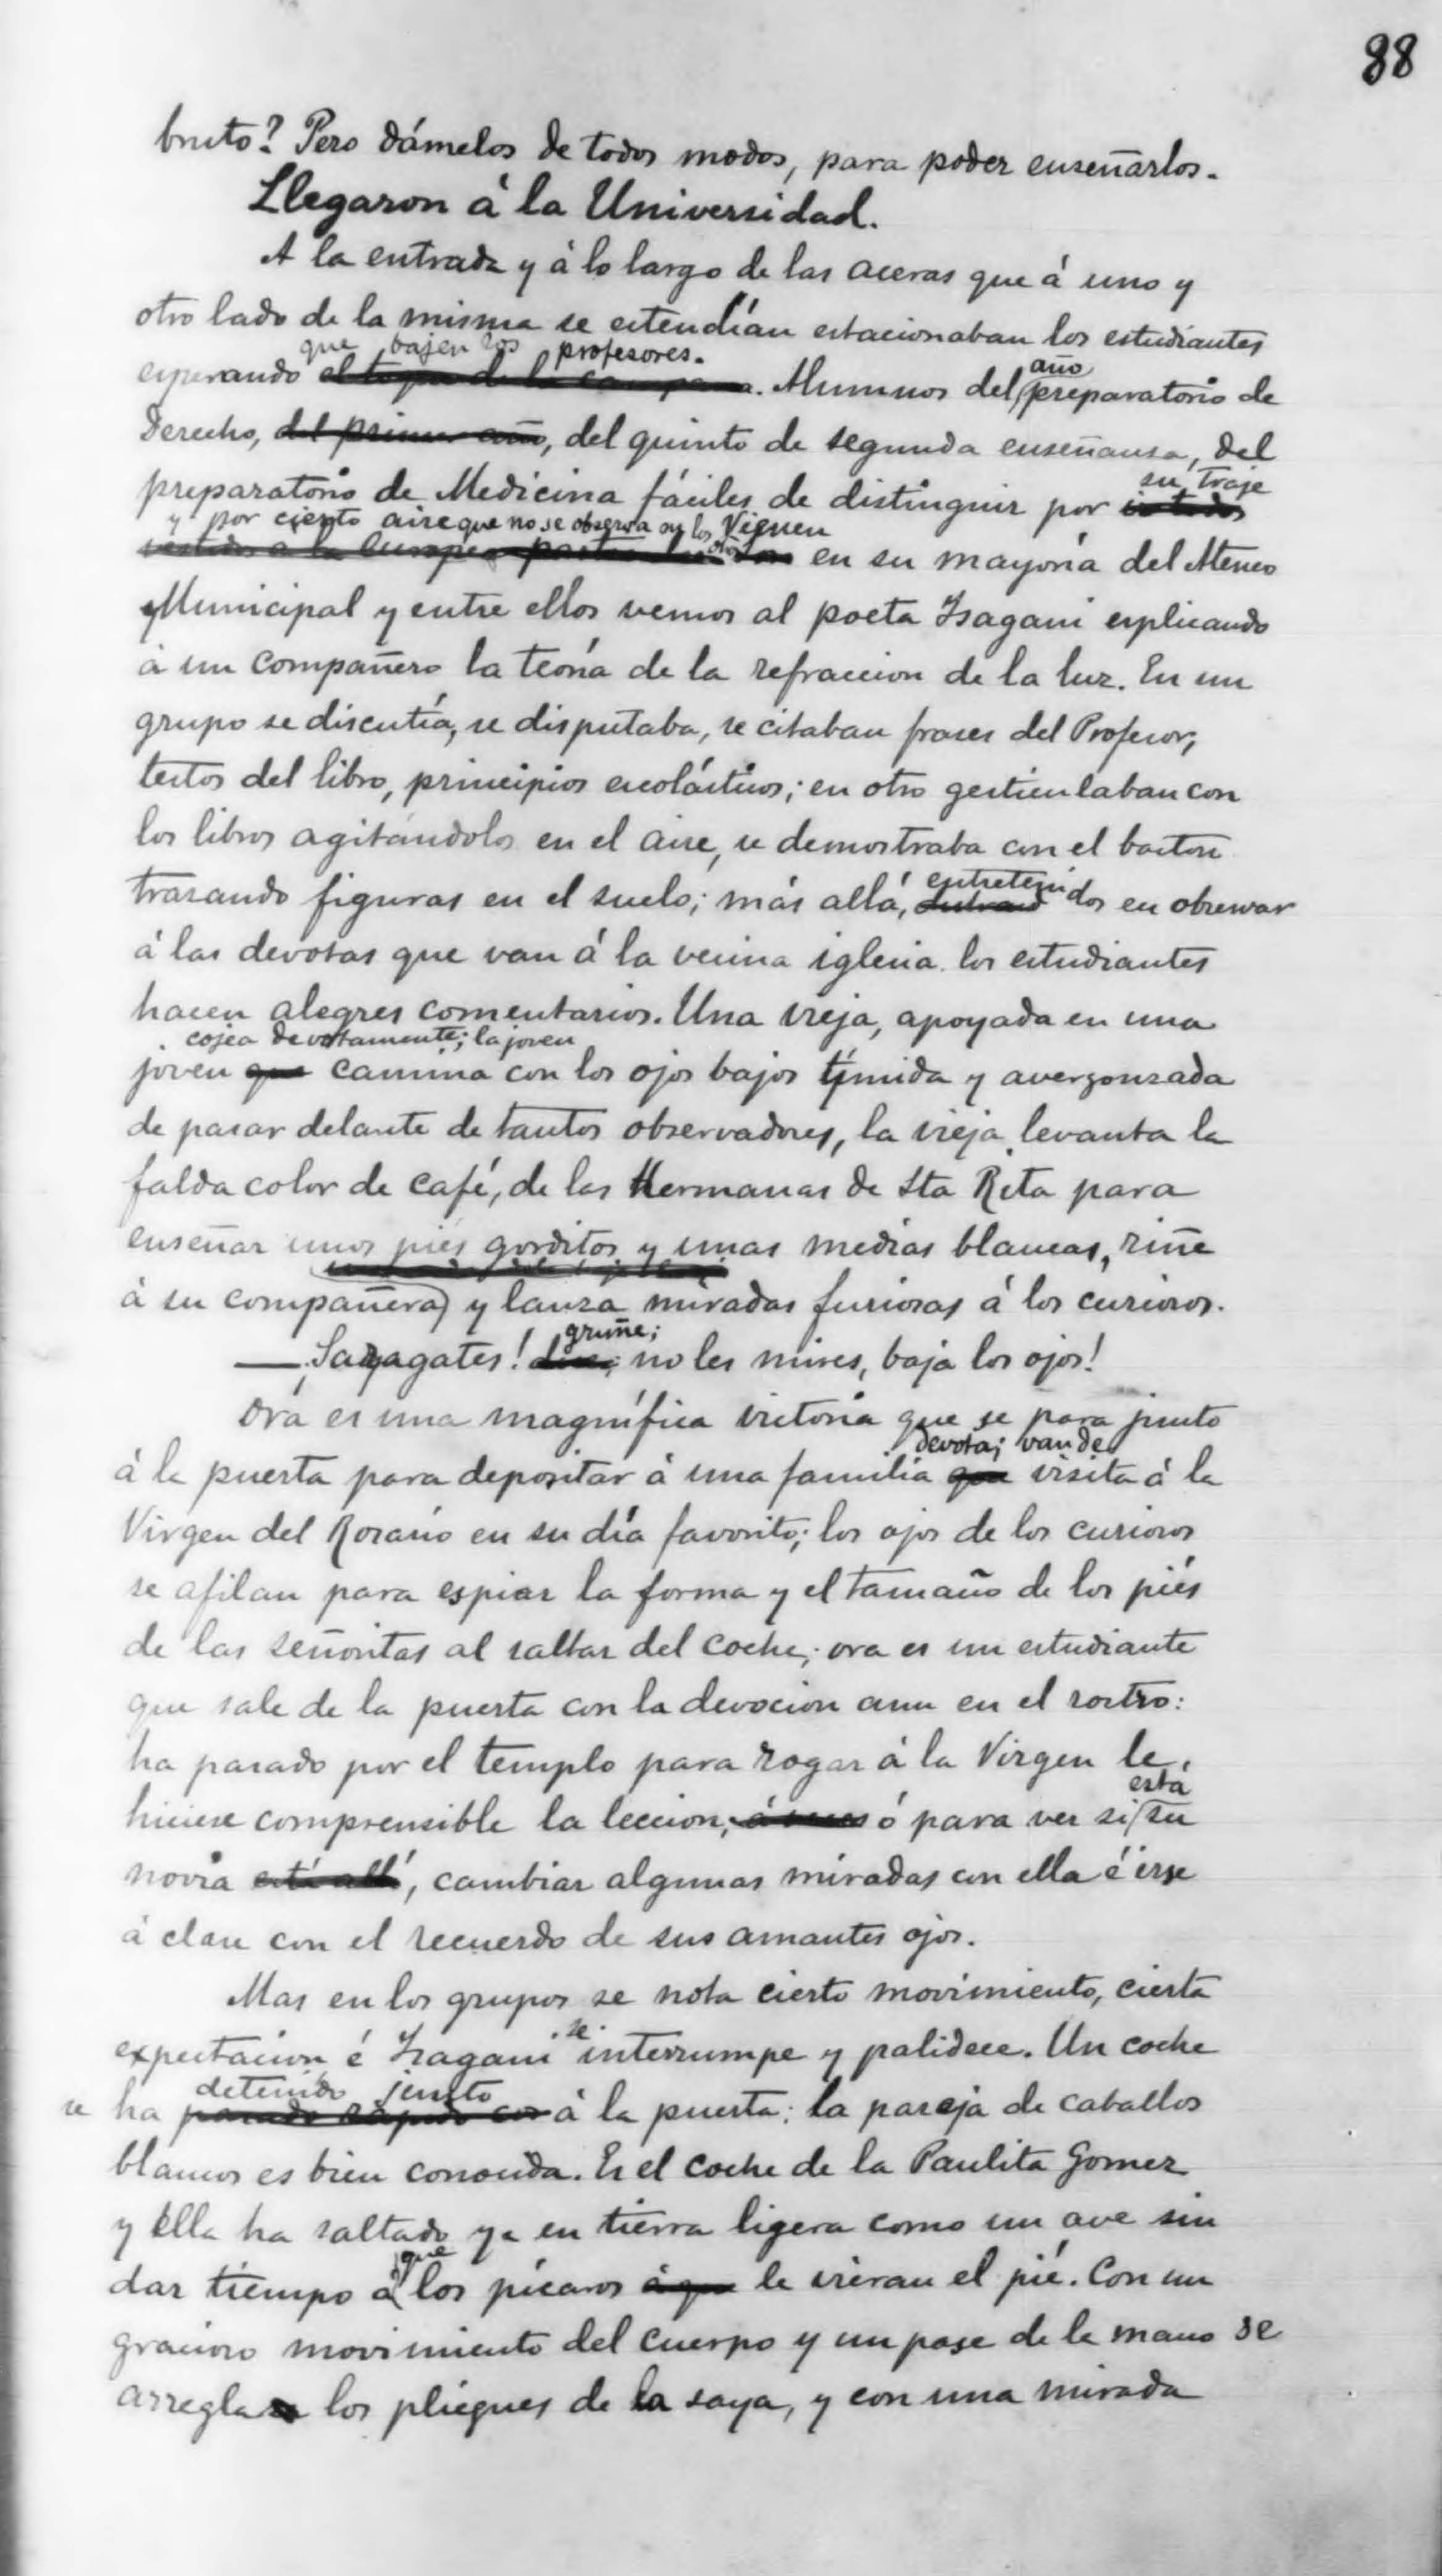 88
bruto? Pero dámelos de todos modos, para poder enseñarlos.
Llegaron á la Universidad.
A la entrada y á lo largo de las aceras que á uno y
otro lado de la misma se estendían estacionaban los estudiantes
que bajen los profesores.
esperando el toque de la campana. Alumnos del año preparatorio de
Derecho, del primer año, del quinto de segunda enseñansa, del
preparatorio de Medicina fáciles de distinguir por su traje
y por cierto aire que no se observa en los otros Vienen
en su mayoría del Ateneo
Municipal y entre ellos vemos al poeta Isagani esplicando
á un compañero la teoría de la refraccion de la luz. En un
grupo se discutía, se disputaba, se citaban frases del Profesor,
testos del libro, principios escolásticos; en otro gesticulaban con
los libros agitándolos en el aire, se demostraba con el baston
trasando figuras en el suelo; más allá, entretenidos en observar
á las devotas que van á la vecina iglesia los estudiantes
hacen alegres comentarios. Una vieja, apoyada en una
cojea devotamente; la joven
joven que camina con los ojos bajos tímida y avergonsada
de pasar delante de tantos observadores, la vieja levanta la
falda color de café, de las Hermanas de Sta Rita para
enseñar unos piés gorditos y unas medias blancas, riñe
á su compañera y lanza miradas furiosas á los curiosos.
— Saragates! gruñe; no les mires, baja los ojos!
Ora es una magnífica victoria que se para junto
devota; van de
á la puerta para depositar á una familia que visita á la
Virgen del Rosario en su día favorito; los ojos de los curiosos
se afilan para espiar la forma y el tamaño de los piés
de las señoritas al saltar del coche; ora es un estudiante
que sale de la puerta con la devocion aun en el rostro:
ha pasado por el templo para rogar á la Virgen le
hiciese comprensible la leccion, ó para ver si está su
novia está allí, cambiar algunas miradas con ella é irse
á clase con el recuerdo de sus amantes ojos.
Mas en los grupos se nota cierto movimiento, cierta
expectacion é Isagani se interrumpe y palidece. Un coche
detenido junto
se ha parado á la puerta: la pareja de caballos
blancos es bien conocida. Es el coche de la Paulita Gomez
y ella ha saltado ya en tierra ligera como un ave sin
dar tiempo á que los pícaros á que le vieran el pié. Con un
gracioso movimiento del cuerpo y un pase de la mano se
arregla los pliegues de la saya, y con una mirada